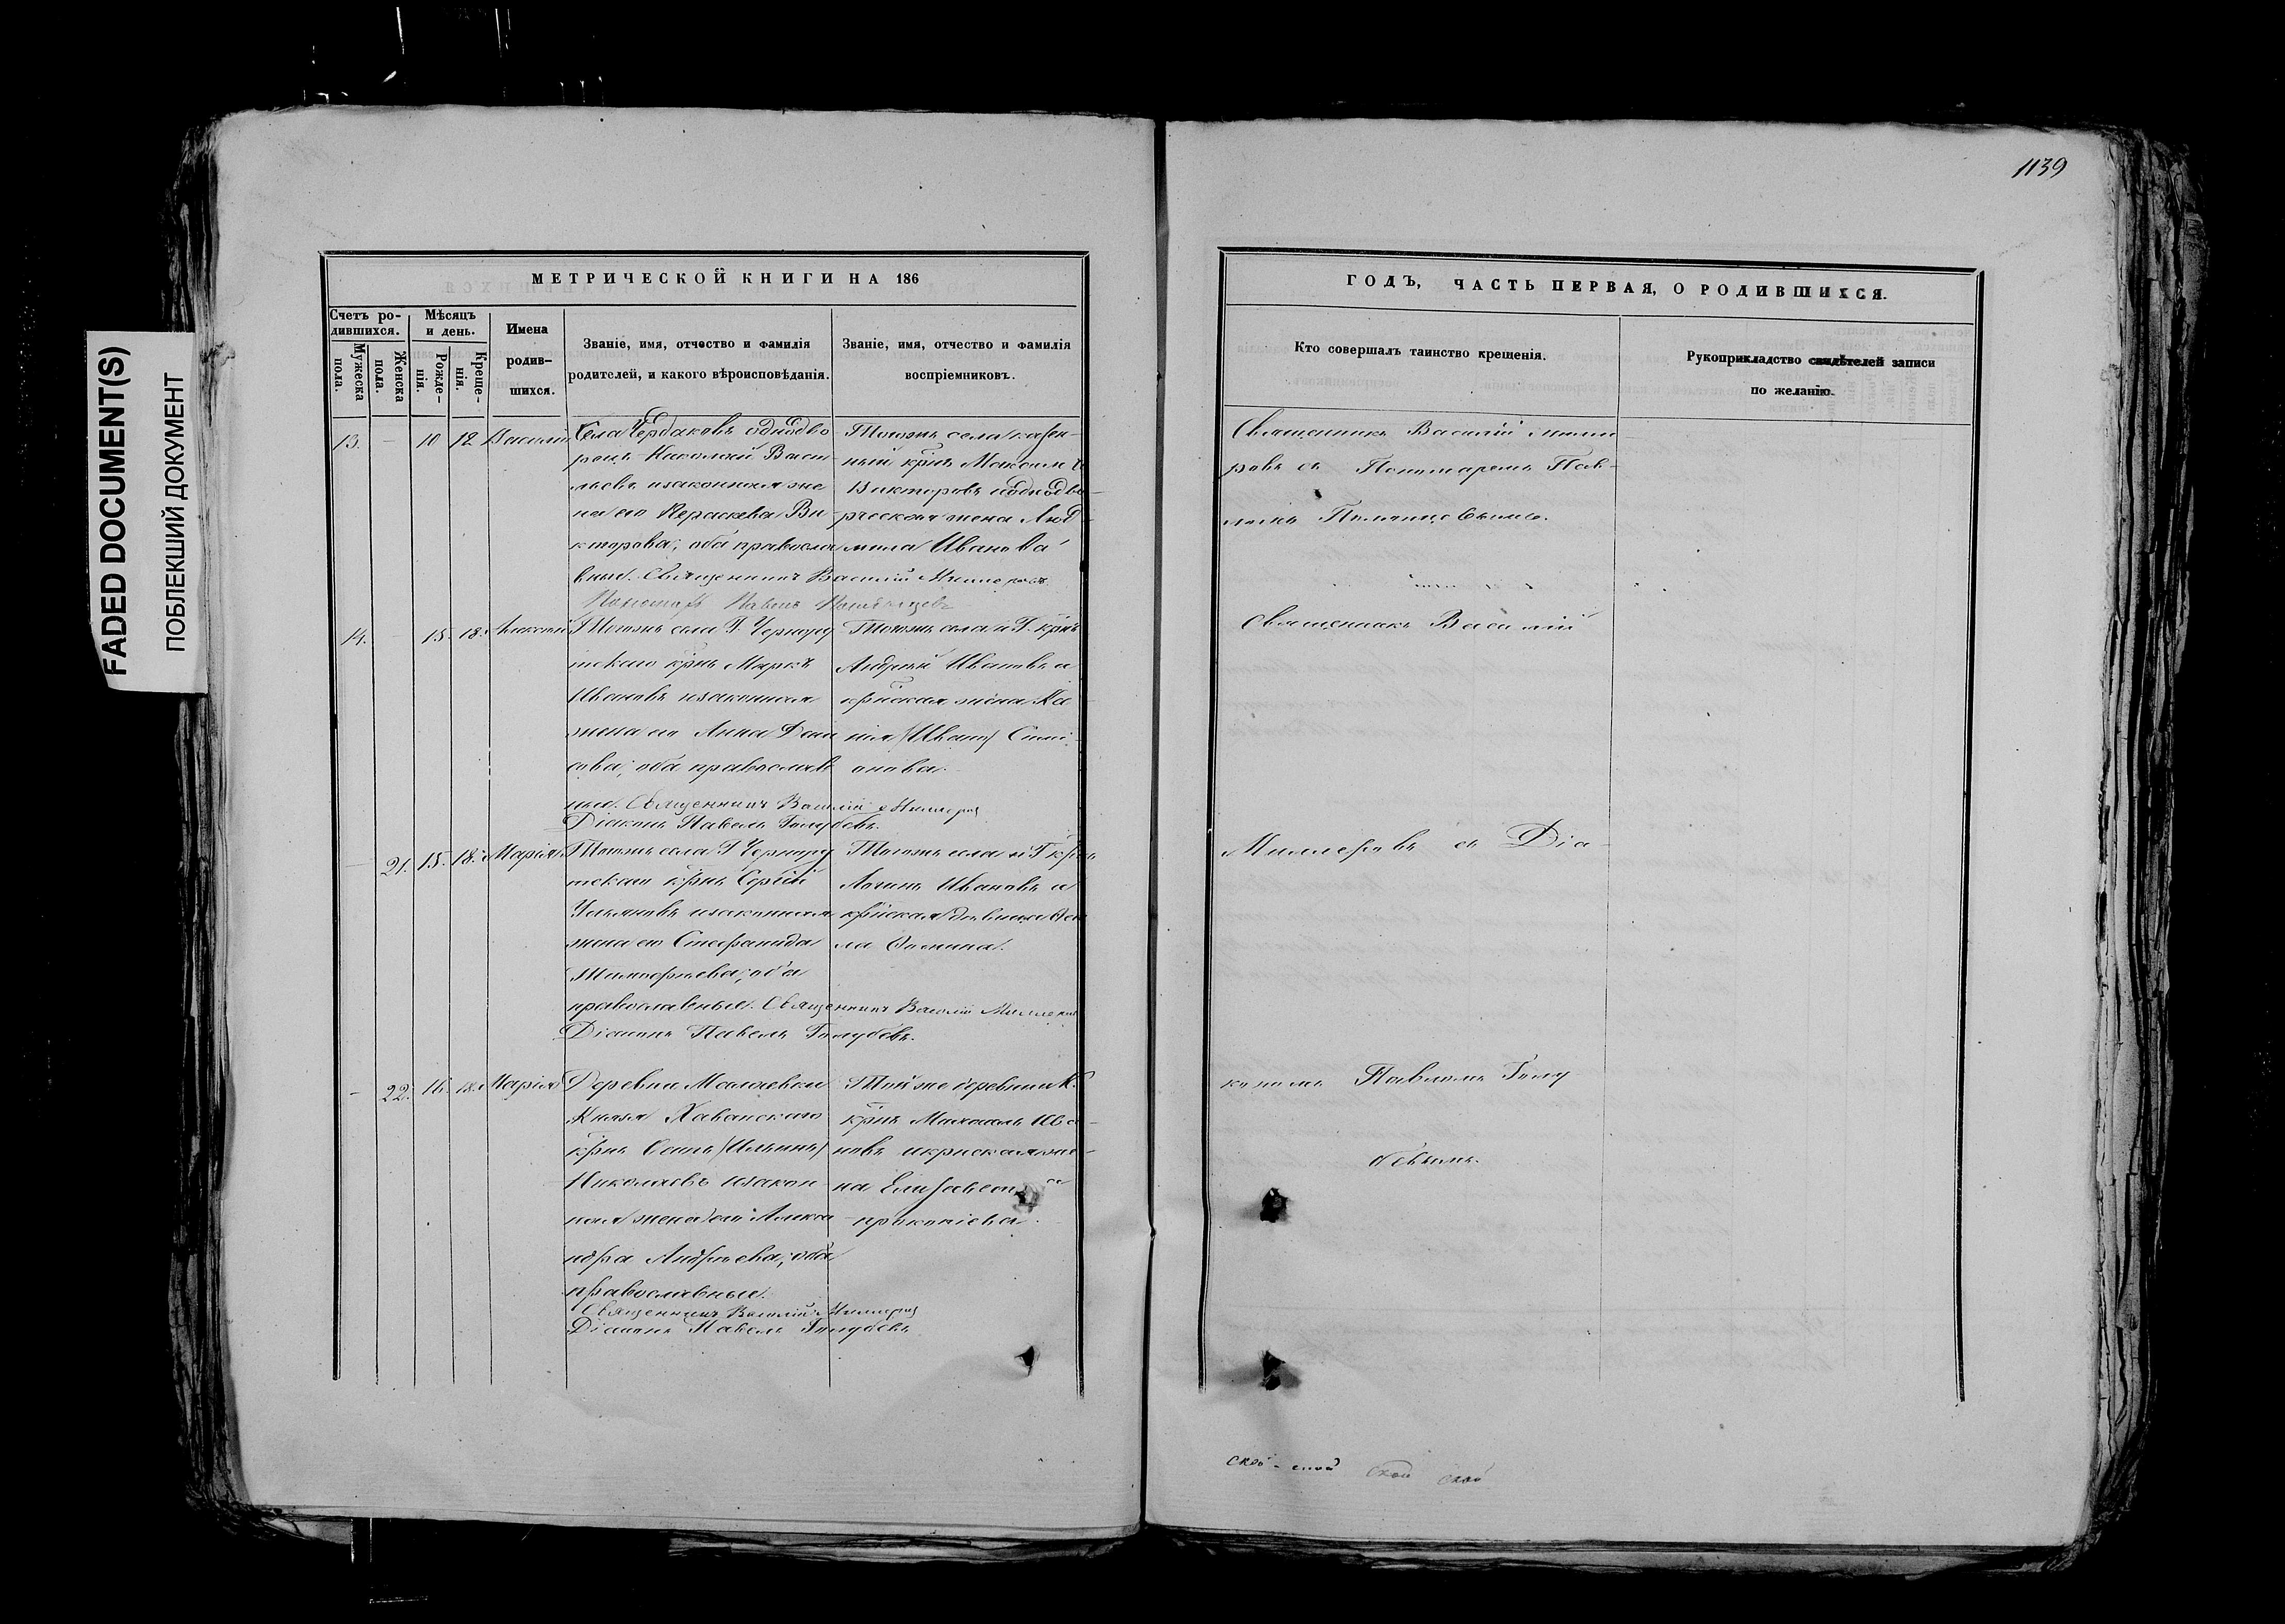 1139
FADED DOCUMENT(S)
ПОБЛЕКШИЙ ДОКУМЕНТ
МЕТРИЧЕСКОЙ КНИГИ НА 186
Счетъ ро-
дившихся.
Мужеска
пола.
Женска
пола.
Мѣсяцъ
и день.
Рожде-
нія.
Креще-
нія.
Имена
родив-
шихся.
Званіе, имя, отчество и фамилія
родителей, и какого вѣроисповѣданія.
Званіе, имя, отчество и фамилія
воспріемниковъ.
13. - 10 12 Василій
Села Чердаковъ однодво
рецъ Николай Васи
льевъ изаконная же
на его Параскева Ви
кторова; оба правосла
вные. Священникъ Василій Миллеровъ
Павелъ
Тогожъ села казен-
ный крнъ Максимъ
Викторовъ иоднодво-
рческая жена Люд-
мила Иванова
14. - 15. 18. Алексей
Тогожъ села Г.
крнъ Маркъ
Ивановъ изаконная
жена его Анна
сова; оба православ
ные. Священникъ Василій Миллеровъ
Діаконъ Павелъ Голубевъ.
Тогожъ села и Г. крнъ
Андрей Ивановъ и
крнская жена
(Иванъ)
онова.
- 21. 15. 18. Марія
Тогожъ села Г
крнъ Сергій
Ульяновъ изаконная
жена его Стефанида
Тимофѣева; оба
православные. Священникъ Василій Миллеровъ
Діаконъ Павелъ Голубевъ.
Тогожъ села и Г крнъ
Логинъ Ивановъ и
крнская дѣвица
ла Фомина.
- 22. 16. 18. Марія
Деревни Малаевки
Князя Хаванскаго
крнъ (Ильинъ)
Николаевъ изакон
ная жена его Алекса
ндра Андрѣева; оба
православные.
Священникъ Василій Миллеровъ
Діаконъ Павелъ Голубевъ
Той же деревни и К.
крнъ Михаилъ Ива-
новъ икрнская же-
на Елизавета
прокопіева.
ГОДЪ, ЧАСТЬ ПЕРВАЯ, О РОДИВШИХСЯ.
Кто совершалъ таинство крещенія.
Рукоприкладство свидѣтелей записи
по желанію.
Священникъ Василій Милле
ровъ съ Пономаремъ Пав-
ломъ
Священникъ Василій
Миллеровъ съ Діа-
кономъ Павломъ Голу
бевымъ.
ской - ской ской ской